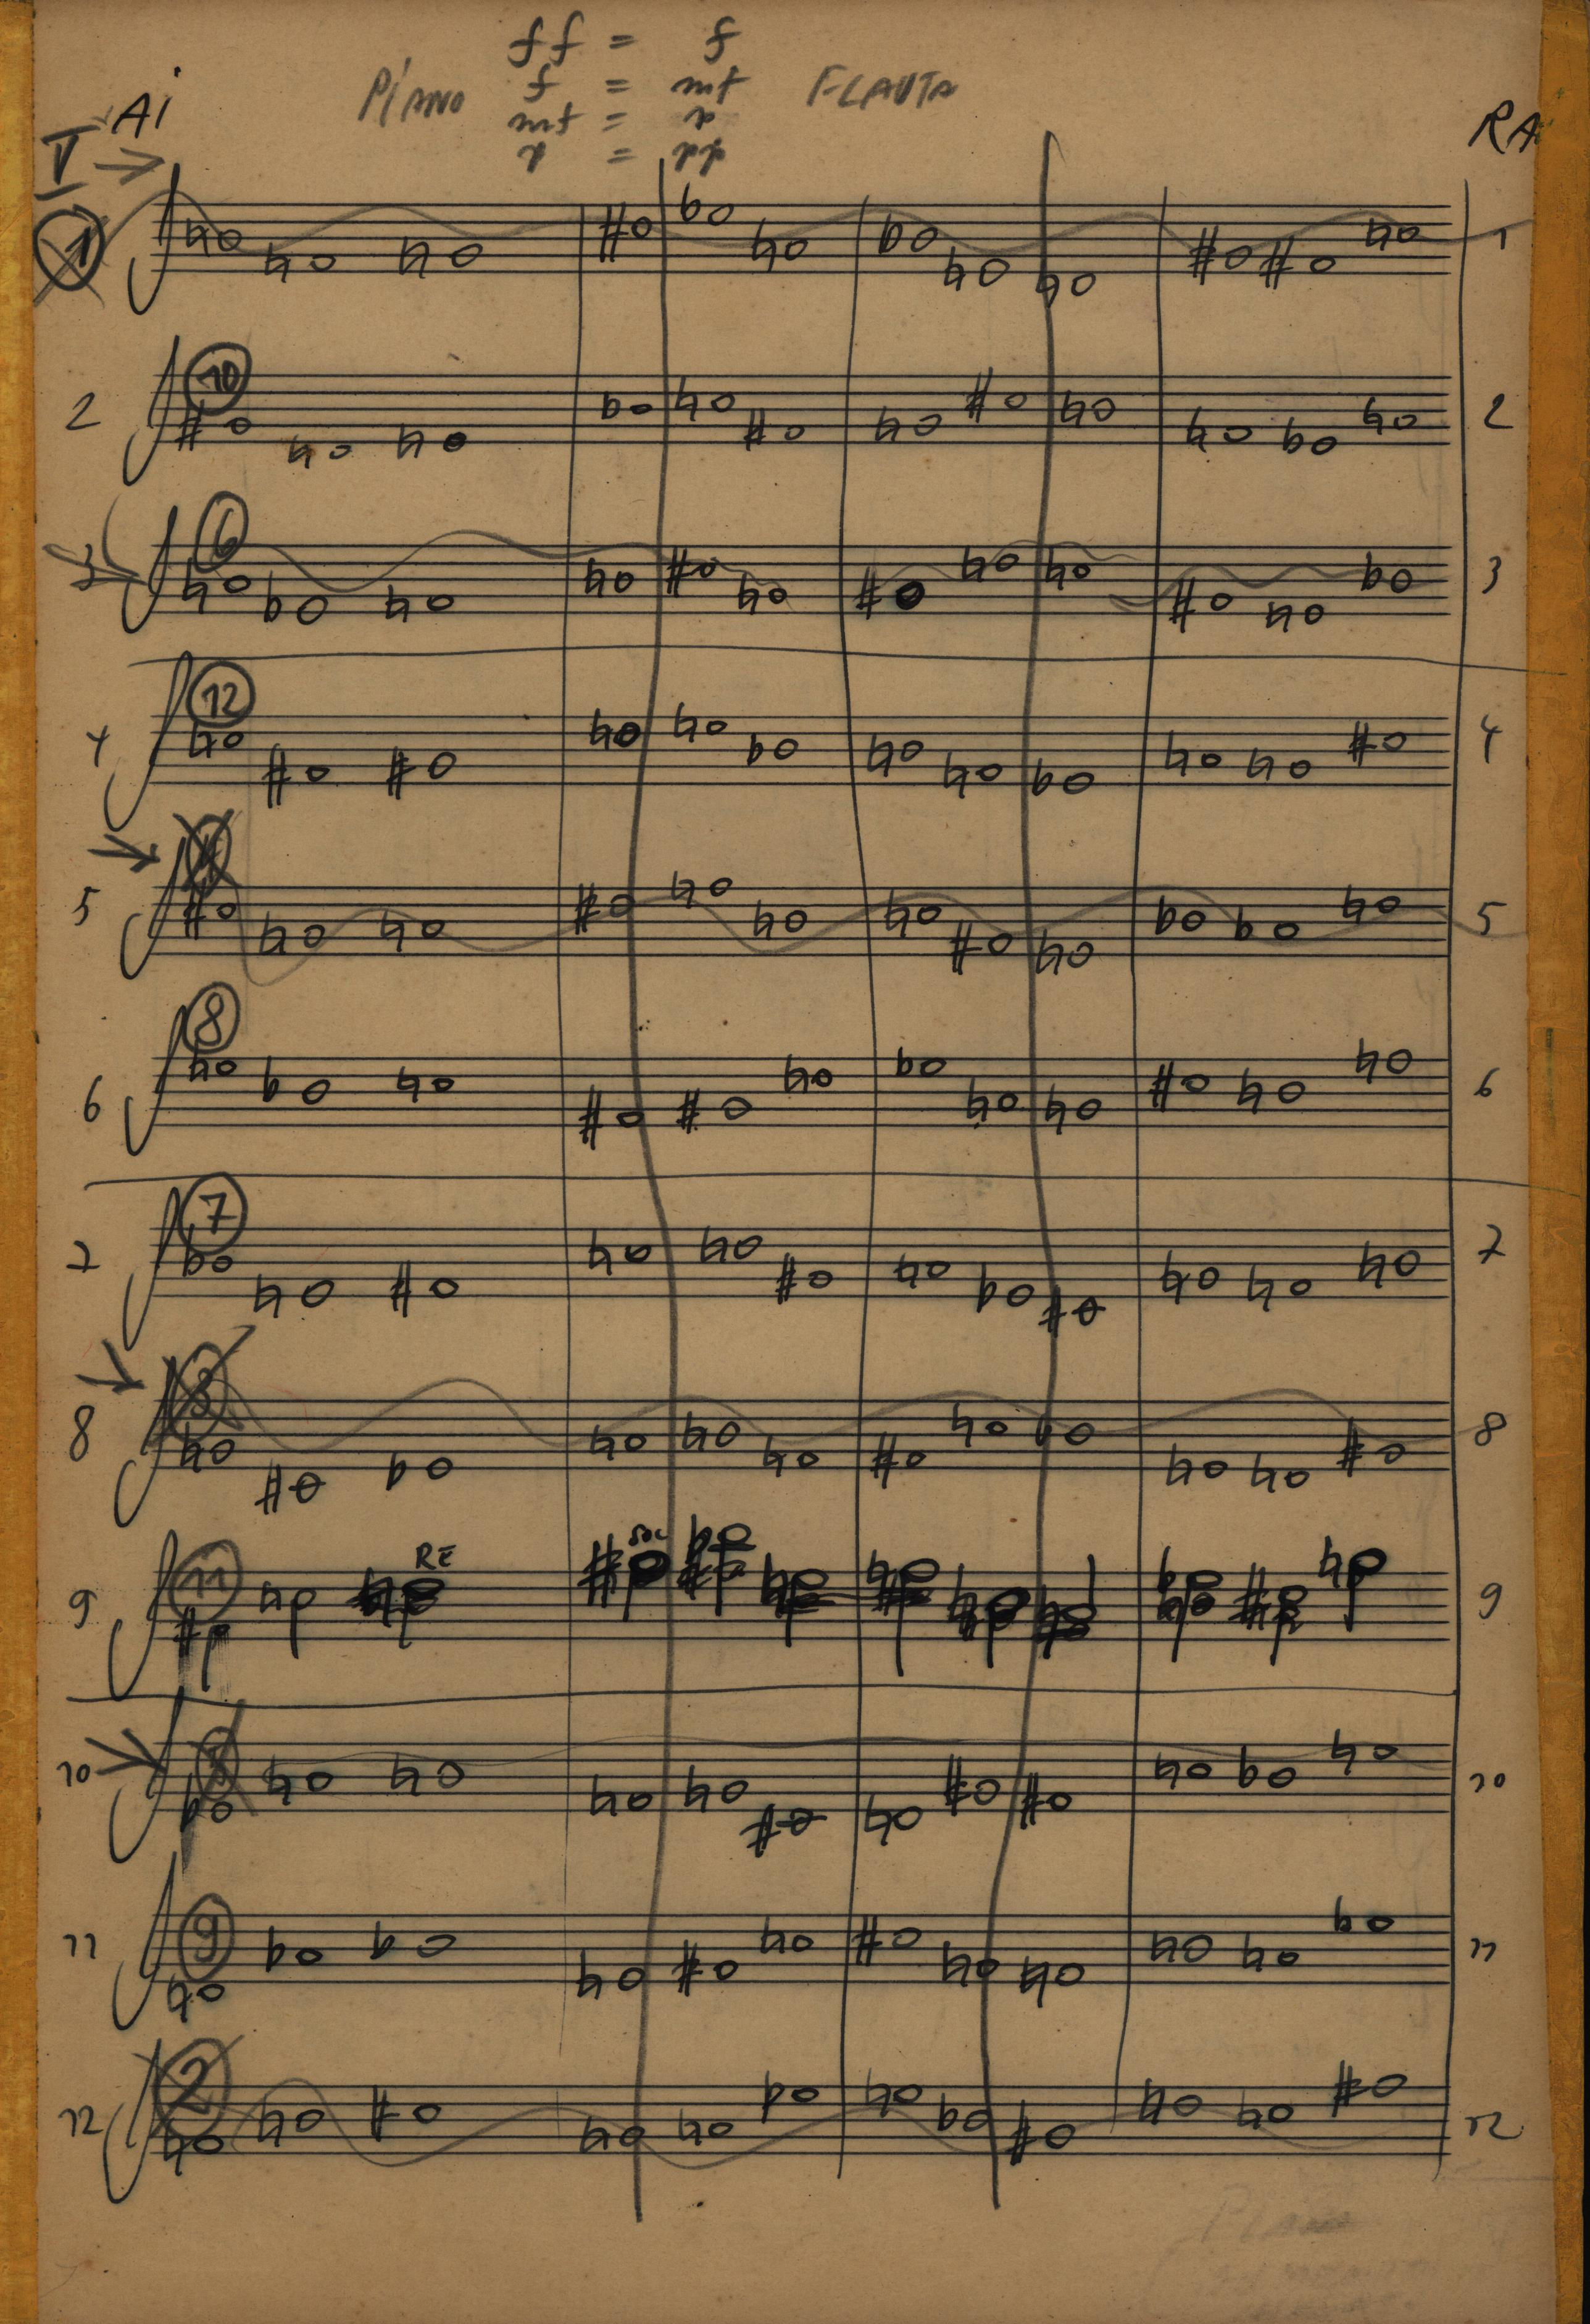 ff = f
PIANO f = mf FLAUTA
mf = p
p = pp
AI RA
V
1 1
10
2 2
6
3 3
12
4 4
5 5
8
6 6
7
7 7
3
8 8
11 RE SOL
9 9
10 10
9
11 11
2
12 12